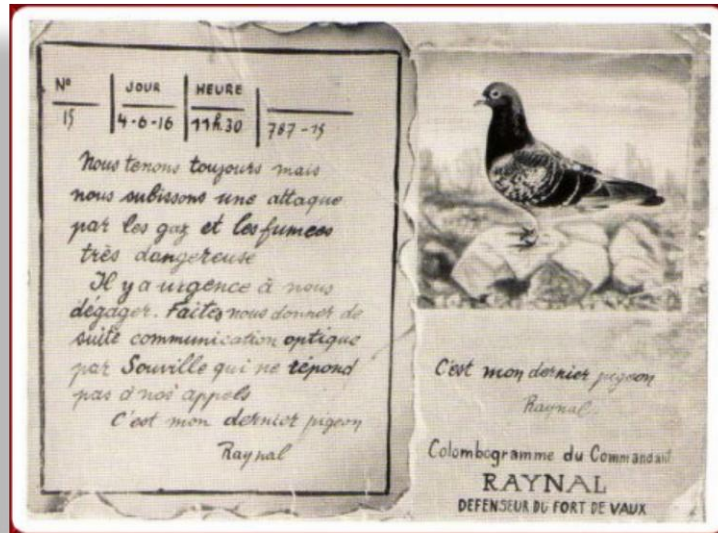 Nº JOUR HEURE
15 4-6-16 11h.30 787-15
Nous tenons toujours mais
nous subissons une attaque
par les gaz et les fumees
très dangereuse
Il y a urgence à nous
dégager. Faites nous donner de
suite communication optique
par Souville qui ne répond
pas à nos appels
C'est mon dernier pigeon
Raynal
C'est mon dernier pigeon
Raynal
Colombogramme du Commandant
RAYNAL
DEFENSEUR DU FORT DE VAUX